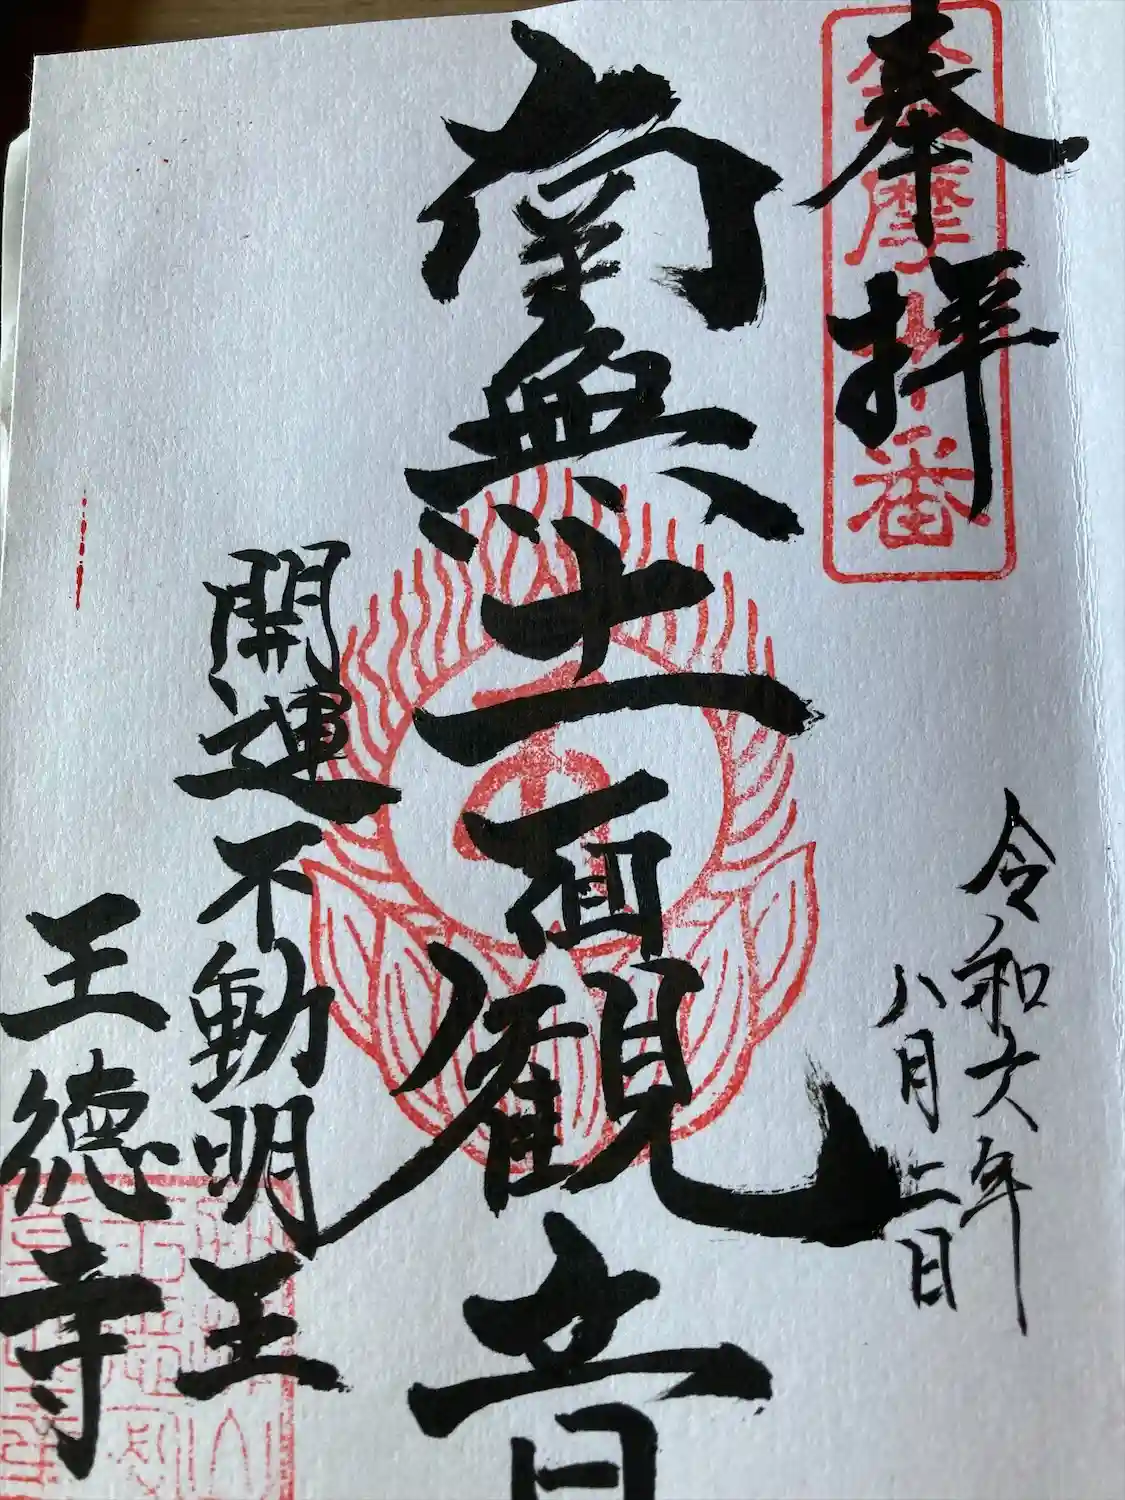 奉拝
令和六年
八月二日
南無十一面観音
開運不動明王
王徳寺